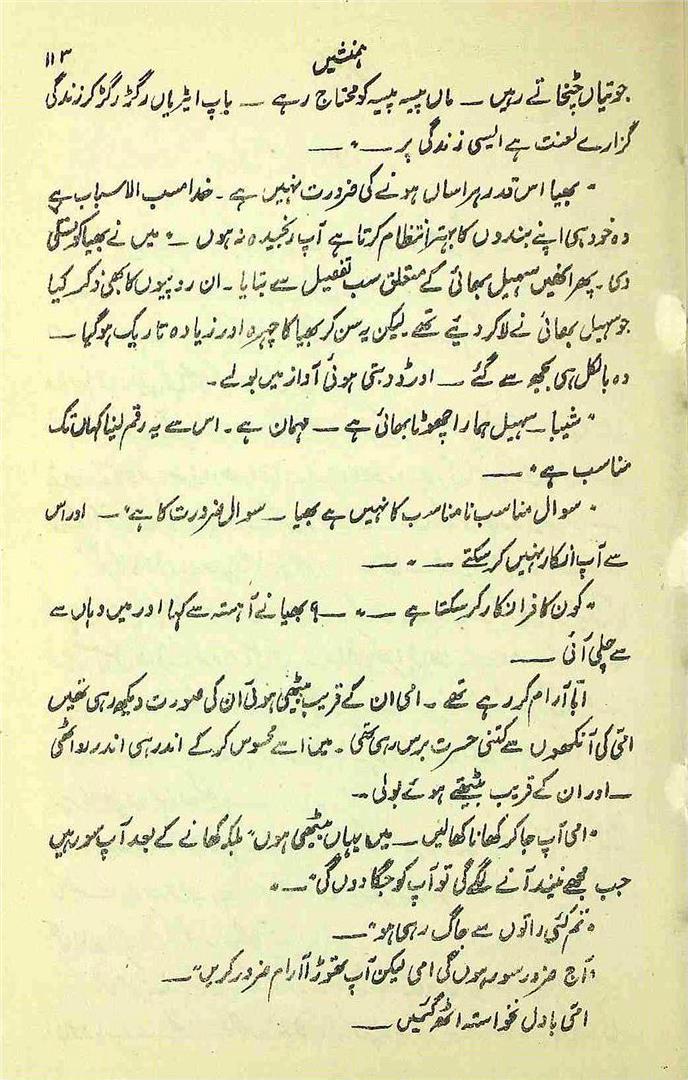 ہمنشیں
۱۱۳
جوتیاں چٹخاتے رہیں ــ ماں پیسہ پیسہ کو محتاج رہے ــ باپ ایڑیاں رگڑ رگڑ کر زندگی
گزارے لعنت ہے ایسی زندگی پر ــ"ــ
" بھیا اس قدر ہراساں ہونے کی ضرورت نہیں ہے ۔ خدا مسب الاسباب ہے
وہ خود ہی اپنے بندوں کا بہتر انتظام کرتا ہے آپ رنجیدہ نہ ہوں ــ" میں نے بھیا کو تسلی
دی ۔ پھر انھیں سہیل بھائی کے متعلق سب تفصیل سے بتایا ۔ ان روپیوں کا بھی ذکر کیا
جو سہیل بھائی نے لا کر دیئے تھے ۔ لیکن یہ سن کر بھیا کا چہرہ اور زیادہ تاریک ہو گیا ــ
وہ بالکل ہی بجھ سے گئے ــ اور ڈوبتی ہوئی آواز میں بولے ۔
" شیبا ــ سہیل ہمارا چھوٹا بھائی ہے ــ مہمان ہے ۔ اس سے یہ رقم لینا کہاں تک
مناسب ہے " ــ
" سوال مناسب نامناسب کا نہیں ہے بھیا ــ سوال ضرورت کا ہے " ــ اور اس
سے آپ انکار نہیں کر سکتے ــ " ــ
" کون کافر انکار کر سکتا ہے ــ " ــ ؟ بھیا نے آہستہ سے کہا اور میں وہاں سے
سے چلی آئی ــ
ابّا آرام کر رہے تھے ۔ امی ان کے قریب بیٹھی ہوئی ان کی صورت دیکھ رہی تھیں
امّی کی آنکھوں سے کتنی حسرت برس رہی تھی ۔ میں اسے محسوس کر کے اندر ہی اندر رو اٹھی
ــ اور ان کے قریب بیٹھتے ہوئے بولی ۔
" امی آپ جا کر کھانا کھالیں ــ میں یہاں بیٹھی ہوں " بلکہ کھانے کے بعد آپ سو رہیں
جب مجھے نیند آنے لگے گی تو آپ کو جگا دوں گی " ــ "
" تم کئی راتوں سے جاگ رہی ہو " ــ
" آج ضرور سو رہوں گی امی لیکن آپ تھوڑا آرام ضرور کریں " ــ
امّی بادل نخواستہ اٹھ گئیں ــ